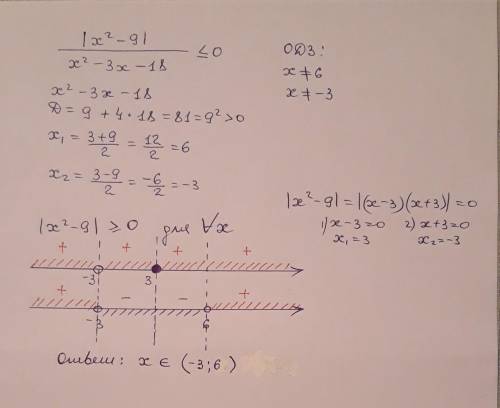 |x² - 9| / (x² - 3x - 18) ≤ 0
ОДЗ:
x ≠ 6
x ≠ -3
x² - 3x - 18
D = 9 + 4 · 18 = 81 = 9² > 0
x₁ = (3+9)/2 = 12/2 = 6
x₂ = (3-9)/2 = -6/2 = -3
|x² - 9| = |(x-3)(x+3)| = 0
1) x-3=0 2) x+3=0
x₁=3 x₂=-3
|x² - 9| ≥ 0 для ∀x
+ + + +
-3 3
+ - - +
-3 6
Ответ: x ∈ (-3; 6)